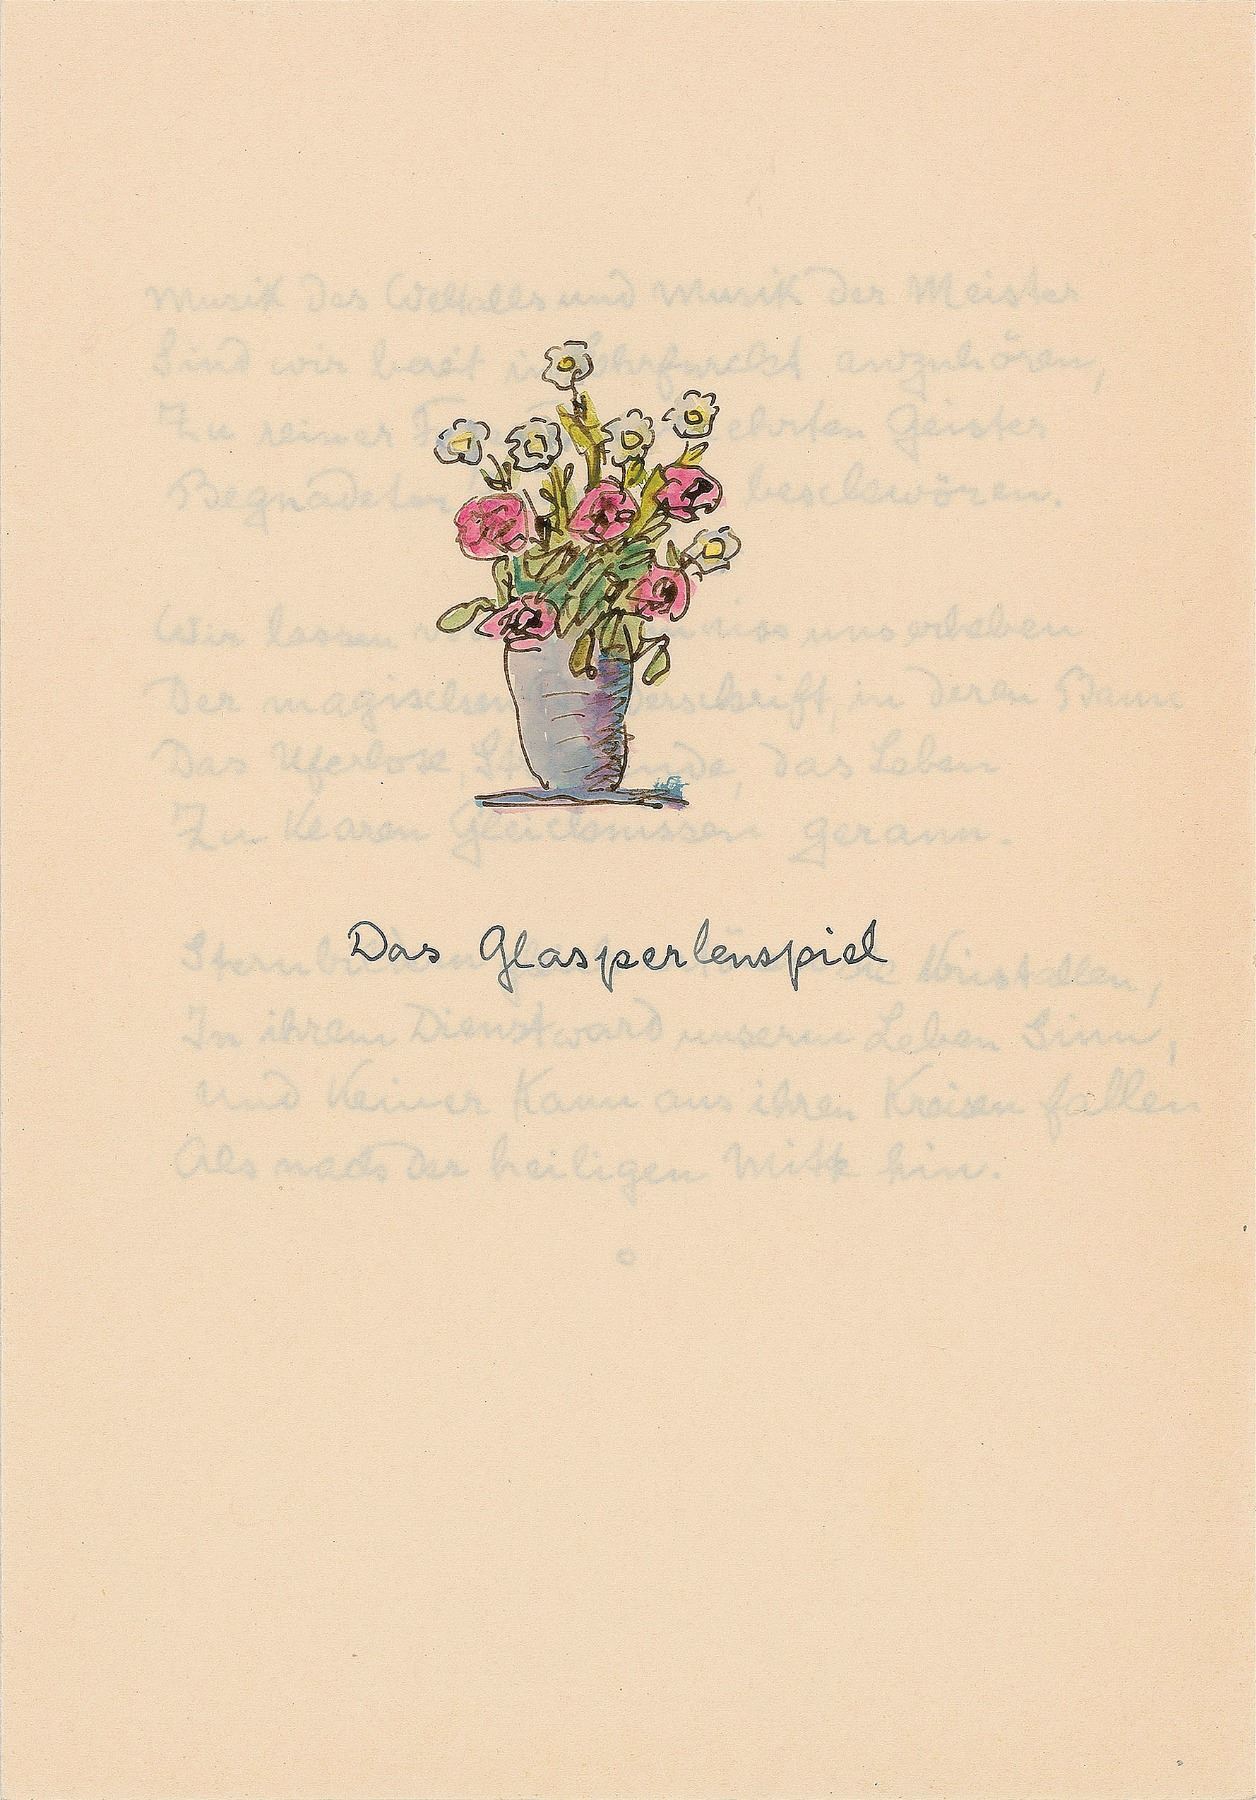 Musik des Weltalls und Musik der Meister
Sind wir bereit in Ehrfurcht anzuhören,
Zu reiner Geister
Begnadeter beschwören.
Wir lassen uns erheben
Der magischen in deren Bann
Das Uferlose, das Leben
Zu klaren Gleichnissen gerann.
Das Glasperlenspiel
Kristallen,
In ihrem Dienst ward unserm Leben Sinn,
Und keiner kann aus ihren Kreisen fallen
Als nach der heiligen Mitte hin.